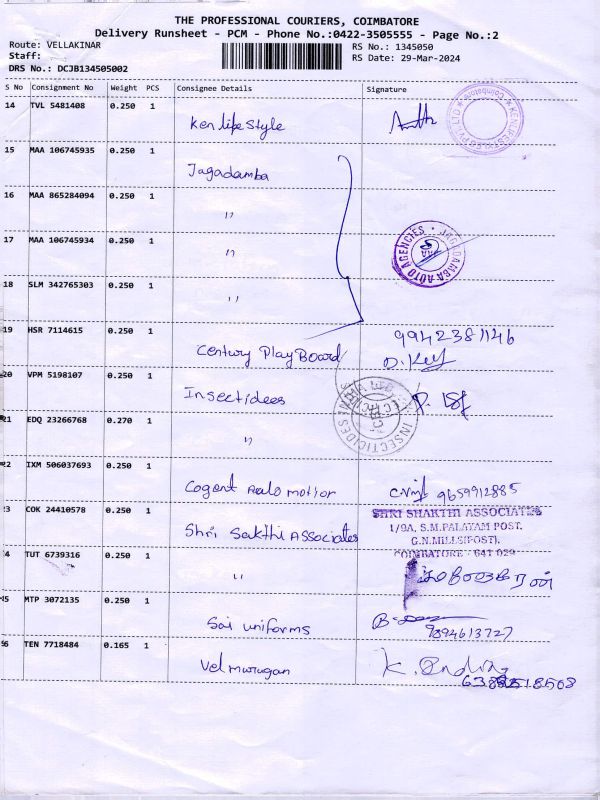 THE PROFESSIONAL COURIERS, COIMBATORE
Delivery Runsheet - PCM - Phone No.:0422-3505555 - Page No.:2
Route: VELLAKINAR
RS No.: 1345050
Staff:
RS Date: 29-Mar-2024
DRS No.: DCJB134505002
S No Consignment No Weight PCS Consignee Details Signature
14 TVL 5481408 0.250 1 Ken life style
15 MAA 106745935 0.250 1 Jagadamba
16 MAA 865284094 0.250 1 "
17 MAA 106745934 0.250 1 "
JAGADAMBA AUTO AGENCIES
18 SLM 342765303 0.250 1 "
19 HSR 7114615 0.250 1 Century Play Board 9942381146
20 VPM 5198107 0.250 1 Insectidees
21 EDQ 23266768 0.270 1 "
22 IXM 506037693 0.250 1 Cogent 9659912885
23 COK 24410578 0.250 1 Shri Sakthi Associates
SHRI SHAKTHI ASSOCIATES
1/9A, S.M.PALAYAM POST,
G.N.MILLS(POST),
COIMBATORE - 641 029
24 TUT 6739316 0.250 1 "
25 MTP 3072135 0.250 1 Sai uniforms 9894613727
26 TEN 7718484 0.165 1 Vel murugan